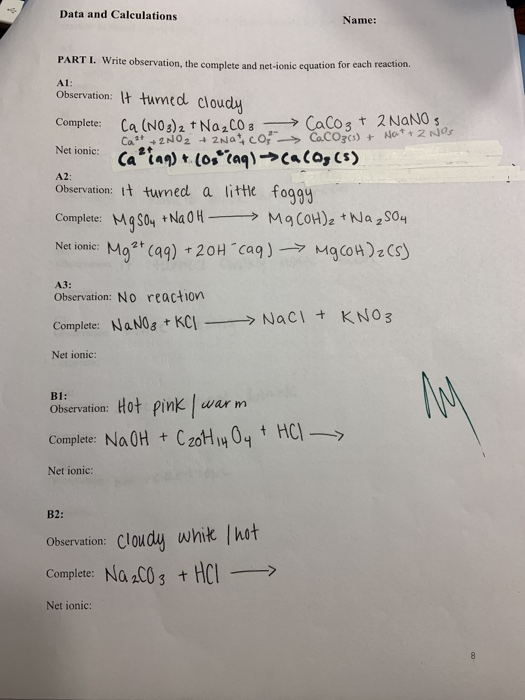 Data and Calculations Name:
PART I. Write observation, the complete and net-ionic equation for each reaction.
A1:
Observation: It turned cloudy
Complete: Ca(NO3)2 + Na2CO3 → CaCO3 + 2NaNO3
Ca2+ + 2NO2 + 2Na+ + CO32- → CaCO3(s) + Na+ + 2NO3
Net ionic: Ca2+(aq) + CO32-(aq) → CaCO3(s)
A2:
Observation: it turned a little foggy
Complete: MgSO4 + NaOH → Mg(OH)2 + Na2SO4
Net ionic: Mg2+(aq) + 2OH-(aq) → Mg(OH)2(s)
A3:
Observation: No reaction
Complete: NaNO3 + KCl → NaCl + KNO3
Net ionic:
B1:
Observation: Hot pink / warm
Complete: NaOH + C20H14O4 + HCl →
Net ionic:
B2:
Observation: Cloudy white / hot
Complete: Na2CO3 + HCl →
Net ionic:
8